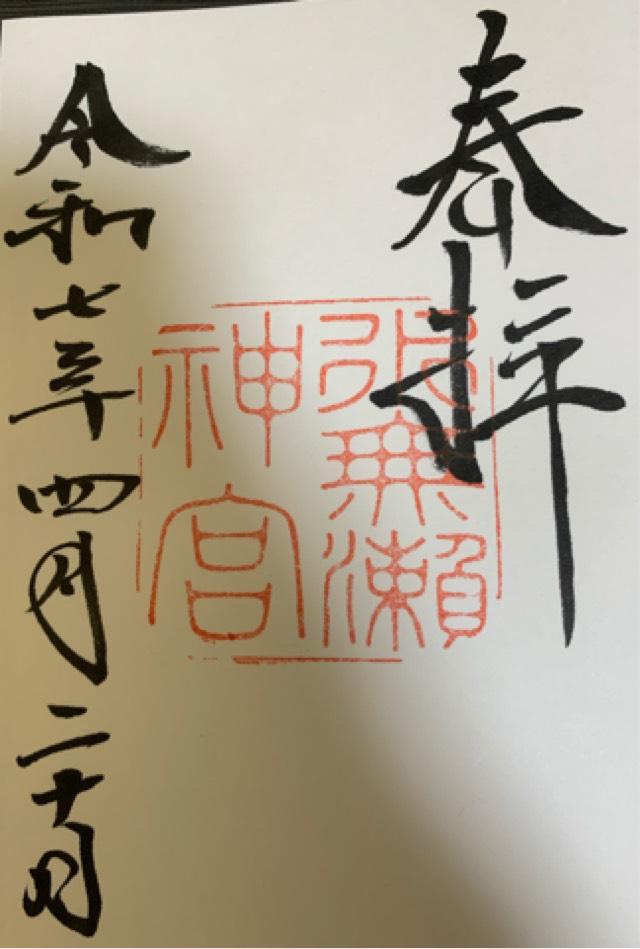 奉拝
水無瀬
神宮
令和七年四月二十日